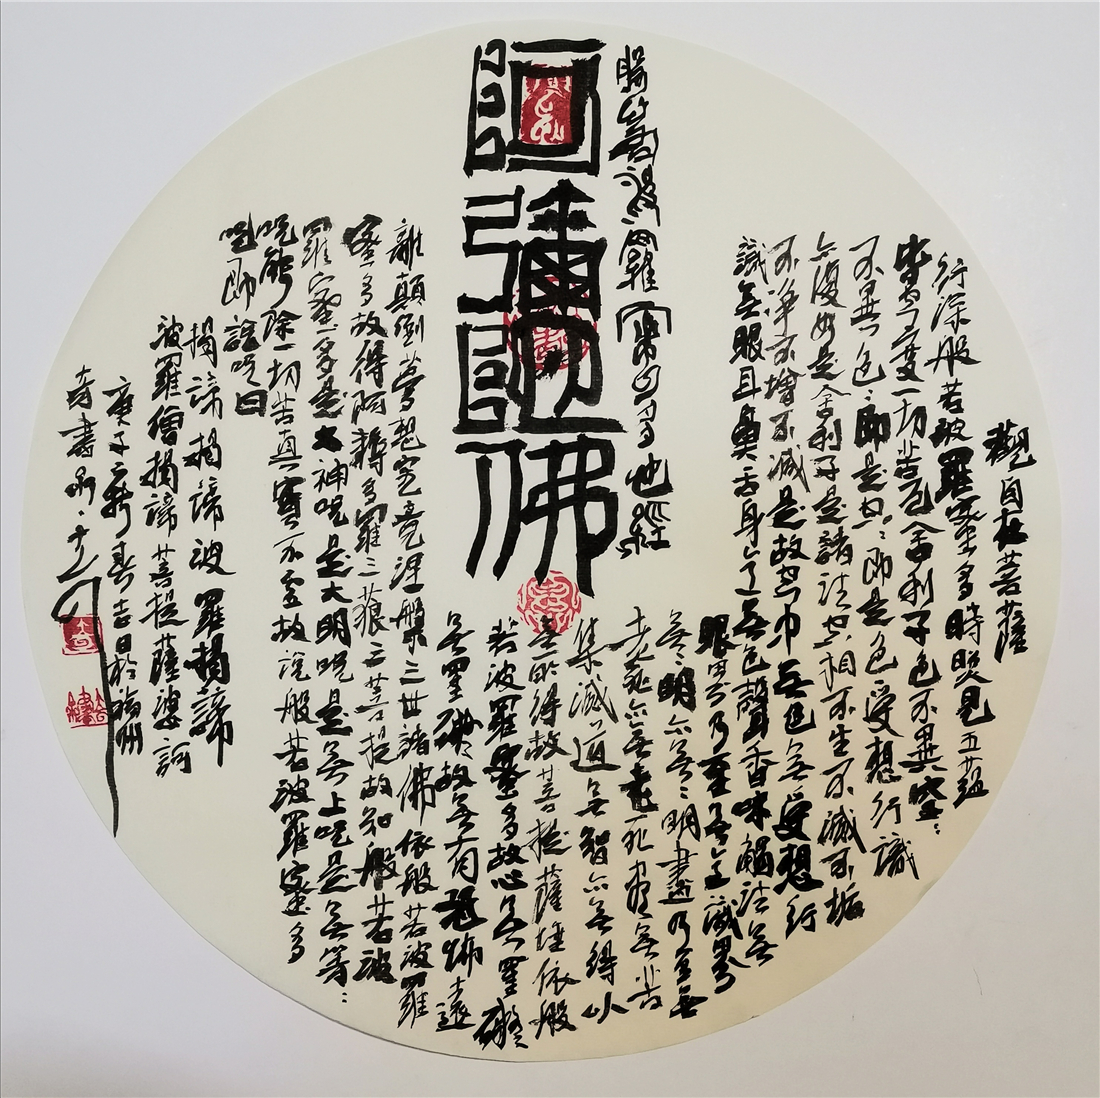 般若波羅蜜多心經
阿彌陀佛
觀自在菩薩
行深般若波羅蜜多時照見五蘊
皆空度一切苦厄舍利子色不異空:
不異色:即是空:即是色受想行識
亦復如是舍利子是諸法空相不生不滅不垢
不淨不增不減是故空中無色無受想行
識無眼耳鼻舌身意無色聲香味觸法無
眼界乃至無意識界
無:明亦無:明盡乃至無
老死亦無老死盡無苦
集滅道無智亦無得以
無所得故菩提薩埵依般
若波羅蜜多故心無罣礙
無罣礙故無有恐怖遠
離顛倒夢想究竟涅槃三世諸佛依般若波羅
蜜多故得阿耨多羅三藐三菩提故知般若波
羅蜜多是大神咒是大明咒是無上咒是無等:
咒能除一切苦真實不虛故說般若波羅蜜多
咒即說咒曰
揭諦揭諦波羅揭諦
波羅僧揭諦菩提薩婆訶
庚子新春吉日於
奇書